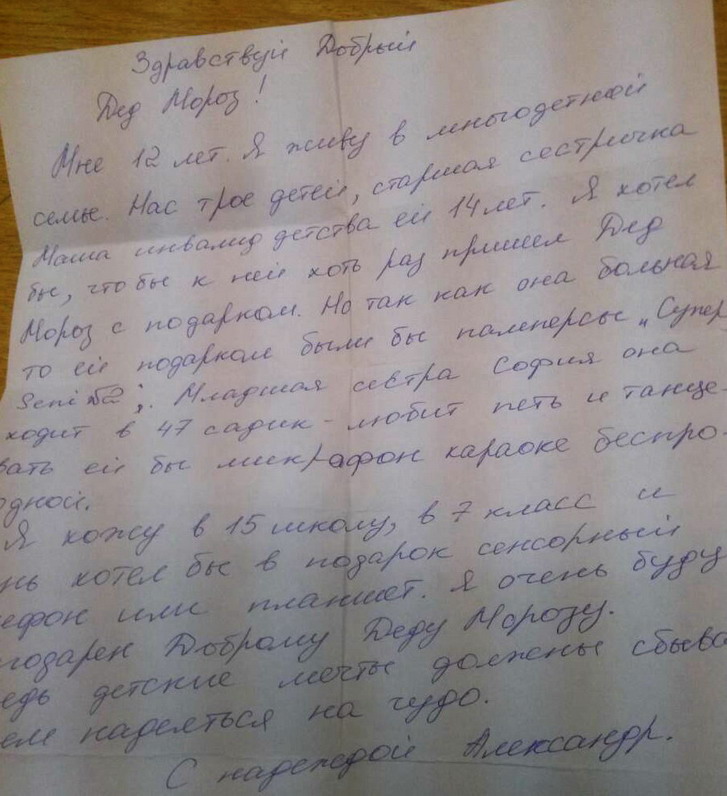 Здравствуй Добрый
Дед Мороз!
Мне 12 лет. Я живу в многодетной
семье. Нас трое детей, старшая сестричка
Маша инвалид детства ей 14 лет. Я хотел
бы, чтобы к ней хоть раз пришел Дед
Мороз с подарком. Но так как она больная
то ей подарком были бы памперсы „Супер
Seni №2;. Младшая сестра София она
ходит в 47 садик - любит петь и танце-
вать ей бы микрафон караоке беспро-
одной.
Я хожу в 15 школу, в 7 класс и
нь хотел бы в подарок сенсорный
ефон или планшет. Я очень буду
годарен Доброму Деду Морозу.
едь детские мечты должны сбыва
ем надеяться на чудо.
С надеждой Александр.